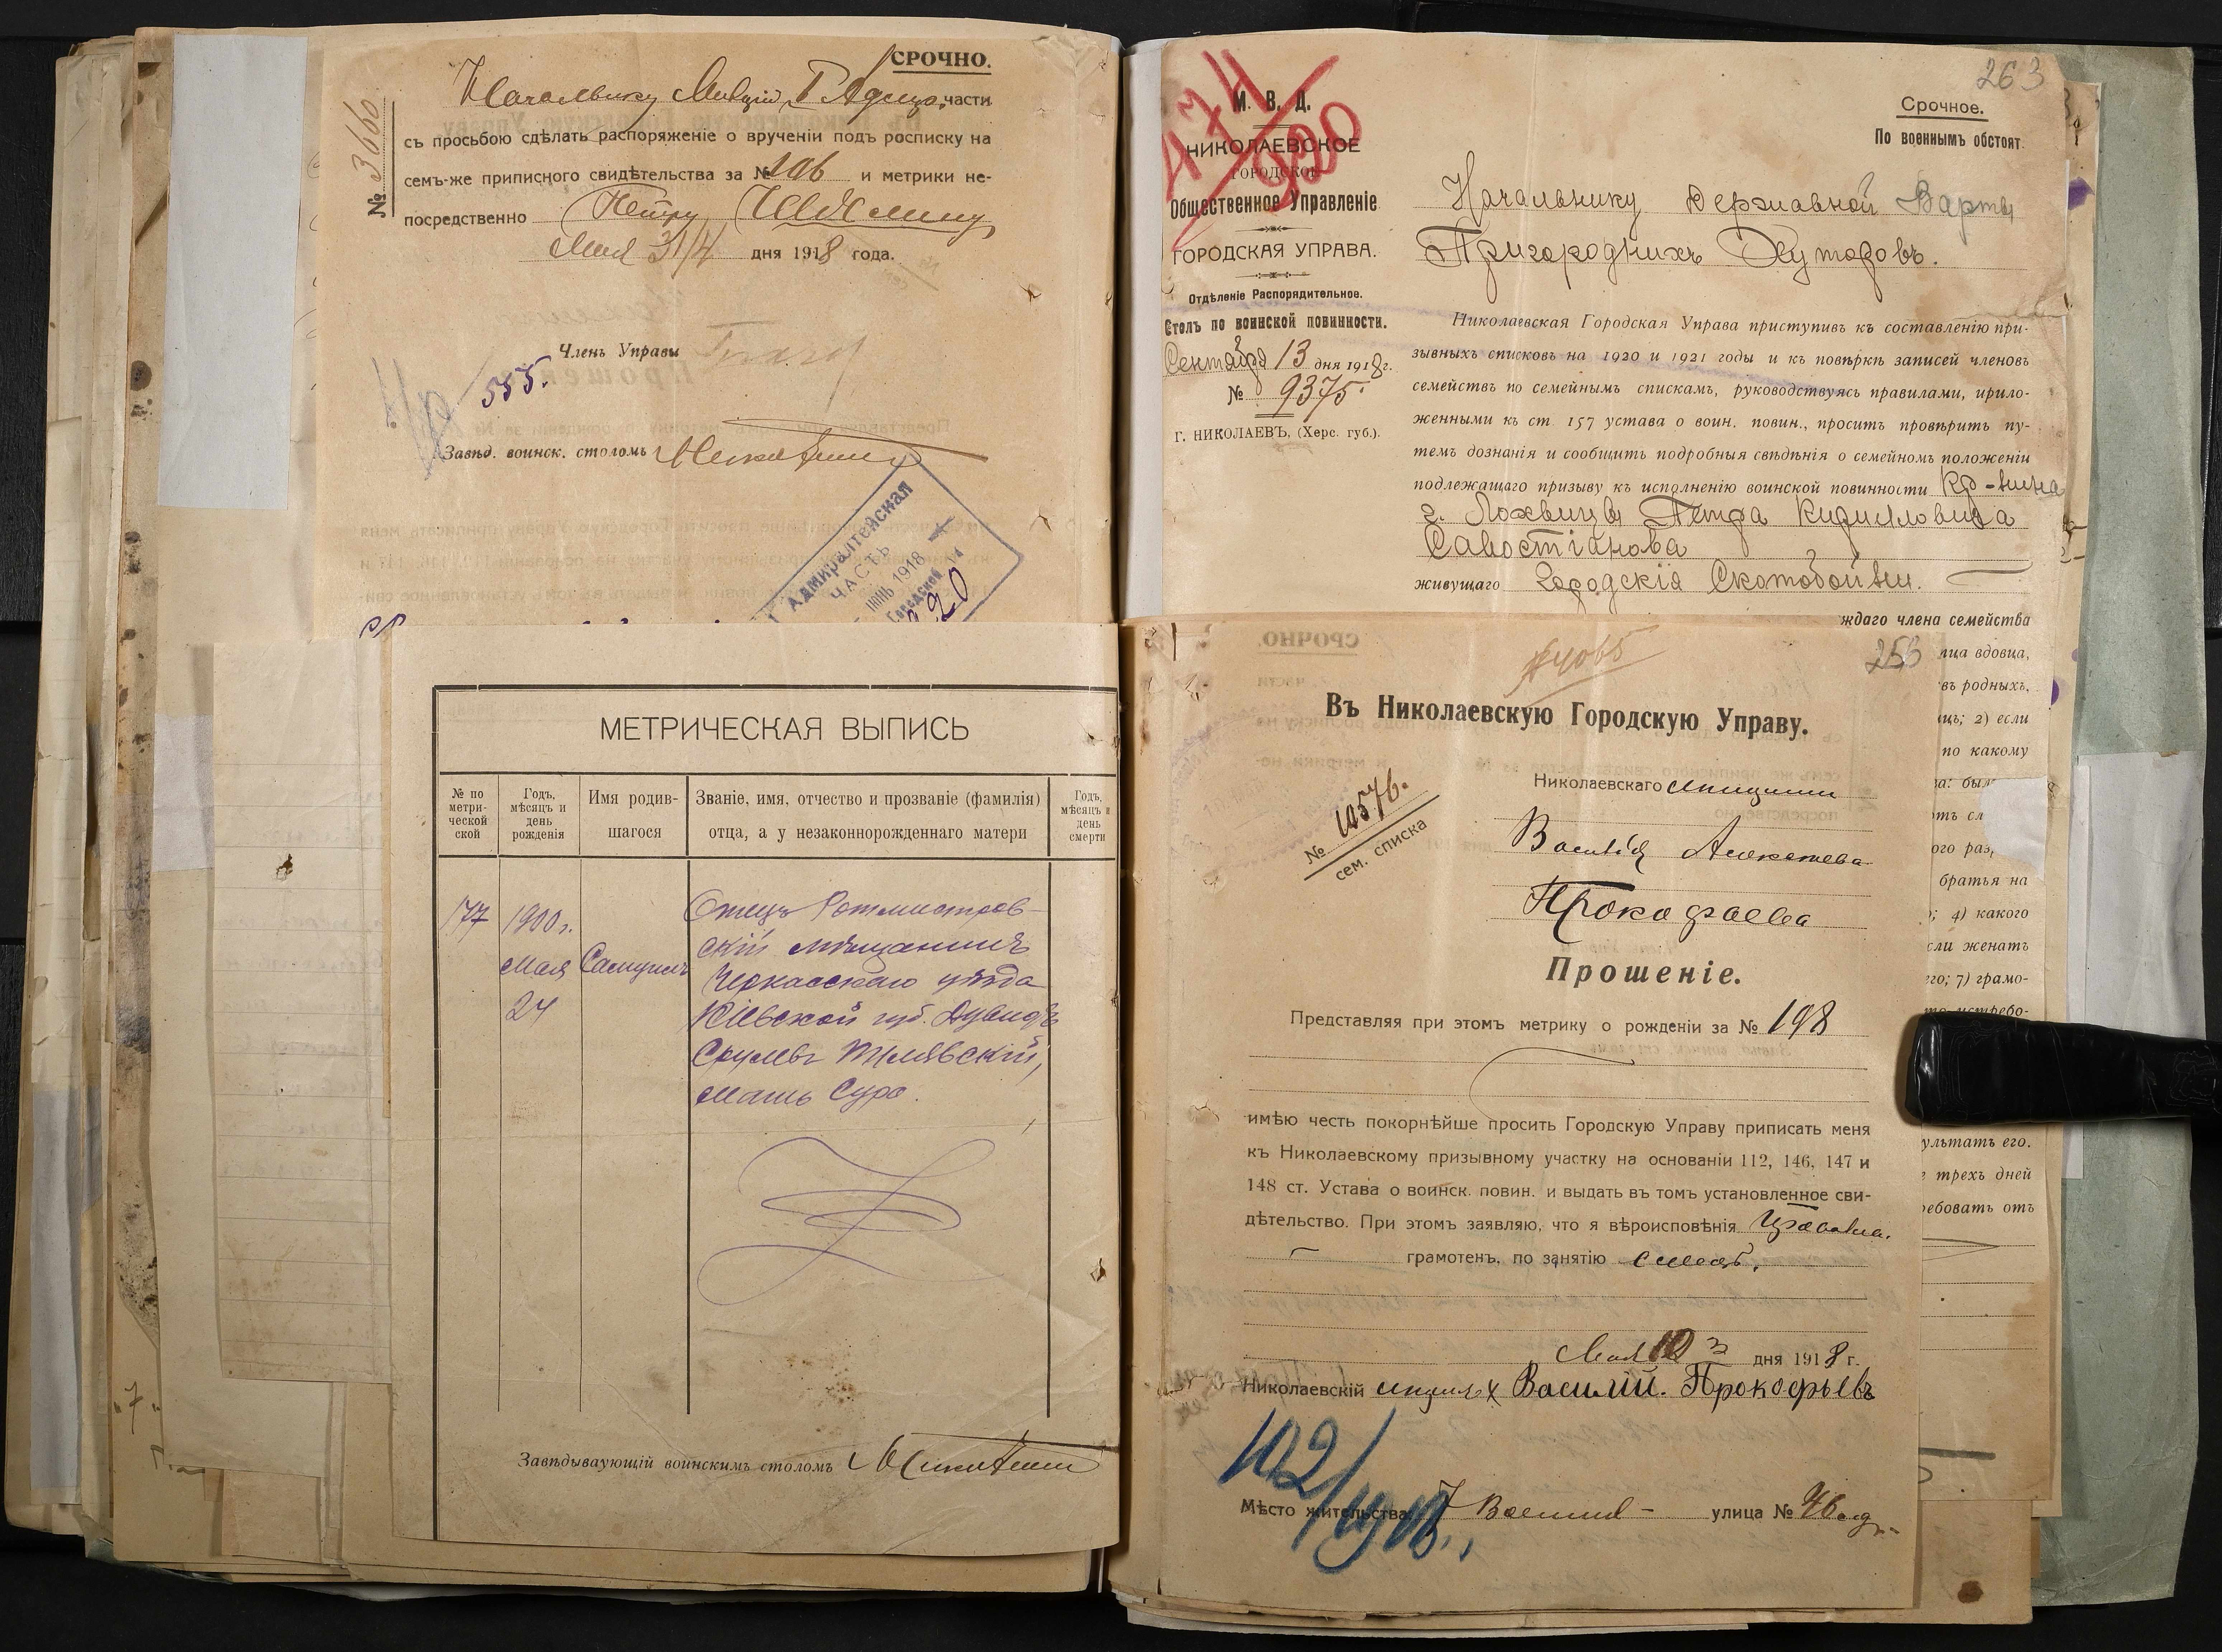 СРОЧНО.
Начальнику Милиціи I Адмир. части
съ просьбою сдѣлать распоряженіе о врученіи подъ росписку на
семъ-же приписного свидѣтельства за № 106 и метрики не-
посредственно Петру
Мая 31/4 дня 1918 года.
№ 3660
Членъ Управы
555.
Завѣд. воинск. столомъ
Адмиралтейская
ЧАСТЬ
1918
Городской
20
МЕТРИЧЕСКАЯ ВЫПИСЬ
№ по метри-ческой ской
Годъ, мѣсяцъ и день рожденія
Имя родив-шагося
Званіе, имя, отчество и прозваніе (фамилія) отца, а у незаконнорожденнаго матери
Годъ, мѣсяцъ и день смерти
177
1900 г.
Мая
24
Самуилъ
Отецъ Ротмистров-
скій мѣщанинъ
Черкасскаго уѣзда
Кіевской губ. Дувидъ
Срулевъ Тилявскій,
мать Сура.
Завѣдывающій воинскимъ столомъ
263
474
920
М. В. Д.
НИКОЛАЕВСКОЕ
ГОРОДСКОЕ
Общественное Управленіе
ГОРОДСКАЯ УПРАВА.
Отдѣленіе Распорядительное.
Столъ по воинской повинности.
Сентября 13 дня 1918 г.
№ 9375.
г. НИКОЛАЕВЪ, (Херс. губ.).
Срочное.
По военнымъ обстоят.
Начальнику Державной Варты
Пригороднихъ Хуторовъ.
Николаевская Городская Управа приступивъ къ составленію при-
зывныхъ списковъ на 1920 и 1921 годы и къ повѣркѣ записей членовъ
семействъ по семейнымъ спискамъ, руководствуясь правилами, прило-
женными къ ст. 157 устава о воин. повин., проситъ провѣрить пу-
темъ дознанія и сообщить подробныя свѣдѣнія о семейномъ положеніи
подлежащаго призыву къ исполненію воинской повинности Кр-нина
г. Лохвицы Петра Кирилловича
Савостіанова
живущаго Городскія Скотобойни.
ждаго члена семейства
лица вдовца,
въ родныхъ,
иць; 2) если
по какому
ого раз,
братья на
; 4) какого
сли женатъ
го; 7) грамо-
ультатъ его.
трехъ дней
ребовать отъ
СРОЧНО
4065
253
Въ Николаевскую Городскую Управу.
№ 10576.
сем. списка
Николаевскаго мѣщанина
Василія Алексѣева
Прокофьева
Прошеніе.
Представляя при этомъ метрику о рожденіи за № 198
имѣю честь покорнѣйше просить Городскую Управу приписать меня
къ Николаевскому призывному участку на основаніи 112, 146, 147 и
148 ст. Устава о воинск. повин. и выдать въ томъ установленное сви-
дѣтельство. При этомъ заявляю, что я вѣроисповѣнія Православн.
грамотенъ, по занятію
Мая 10 дня 1918 г.
Николаевскій Василій. Прокофьевъ
102/1918.
Мѣсто жительства: 7 Военная улица № 46